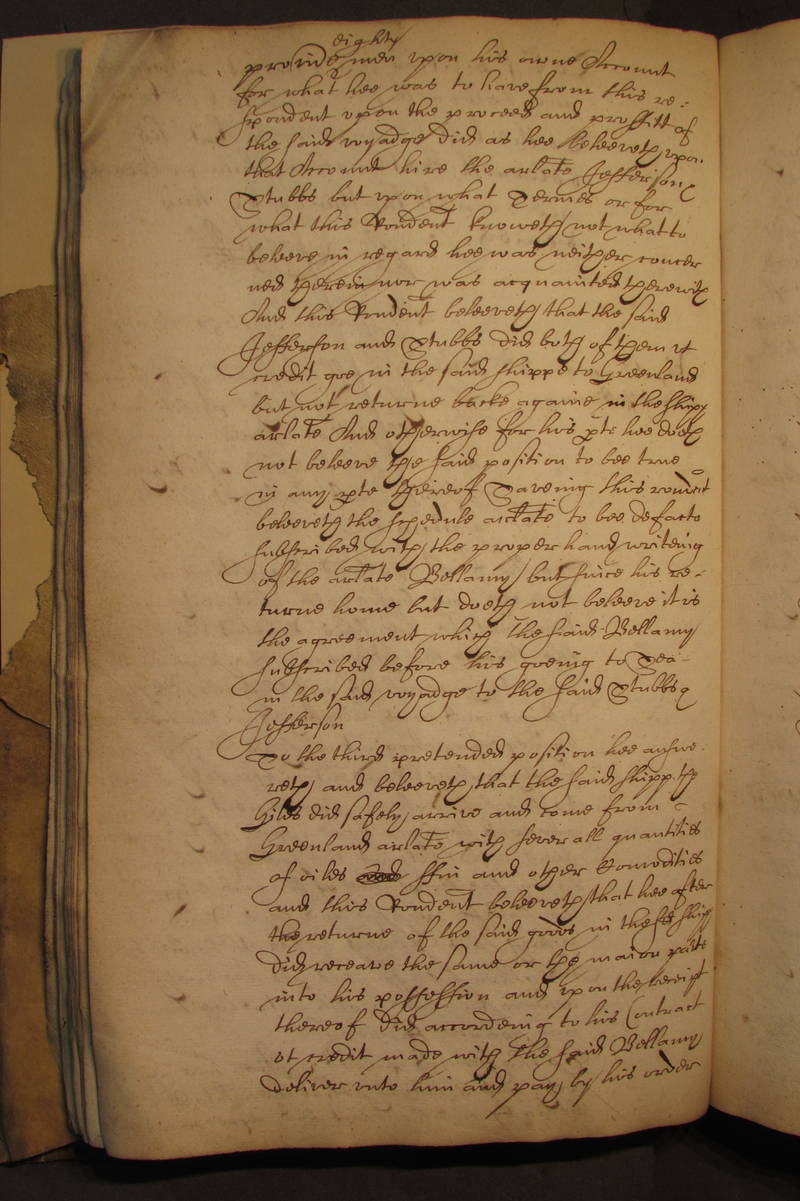 eighty
provide men vpon his owne Account
for what hee was to have from this re-
spondent vpon the proceed and proffitt of
the said voyadge did as hee beleeveth vpon
that Account hire the arlate Jefferson &
Stubbs but vpon what Termes or for
what this Rondent knoweth not what to
beleeve in regard hee was neither concer
ned therein nor was acquainted therewith
And this Rondent beleeveth that the said
Jefferson and Stubbs did both of them vt
credit goe in the said shippe to Greenland
but not returne backe againe in the shipp
arlate And otherwise for his pte hee doeth
not beleeve the said position to bee true
in any pte thereof Saveing this rondent
beleeveth the schedule arlate to bee de facto
subscribed with the proper hand writeing
of the arlate Bellamy but since his re-
turne home but doeth not beleeve it is
the agreement which the said Bellamy
subscribed before his goeing to Sea
in the said voyadge to the said Stubbs &
Jefferson
To the third pretended position hee answe
reth and beleeveth that the said shipp the
Giles did safely arrive and come from
Greenland arlate with severall quantities
of oiles ffin and other Comodities
and this Rondent beleeveth that hee after
the returne of the said goods in the sd shipp
did receave the same or the maior parte
into his possession and vpon the receipt
thereof did accordeing to his Contract
vt credit made with the said Bellamy
deliver vnto him and pay by his order